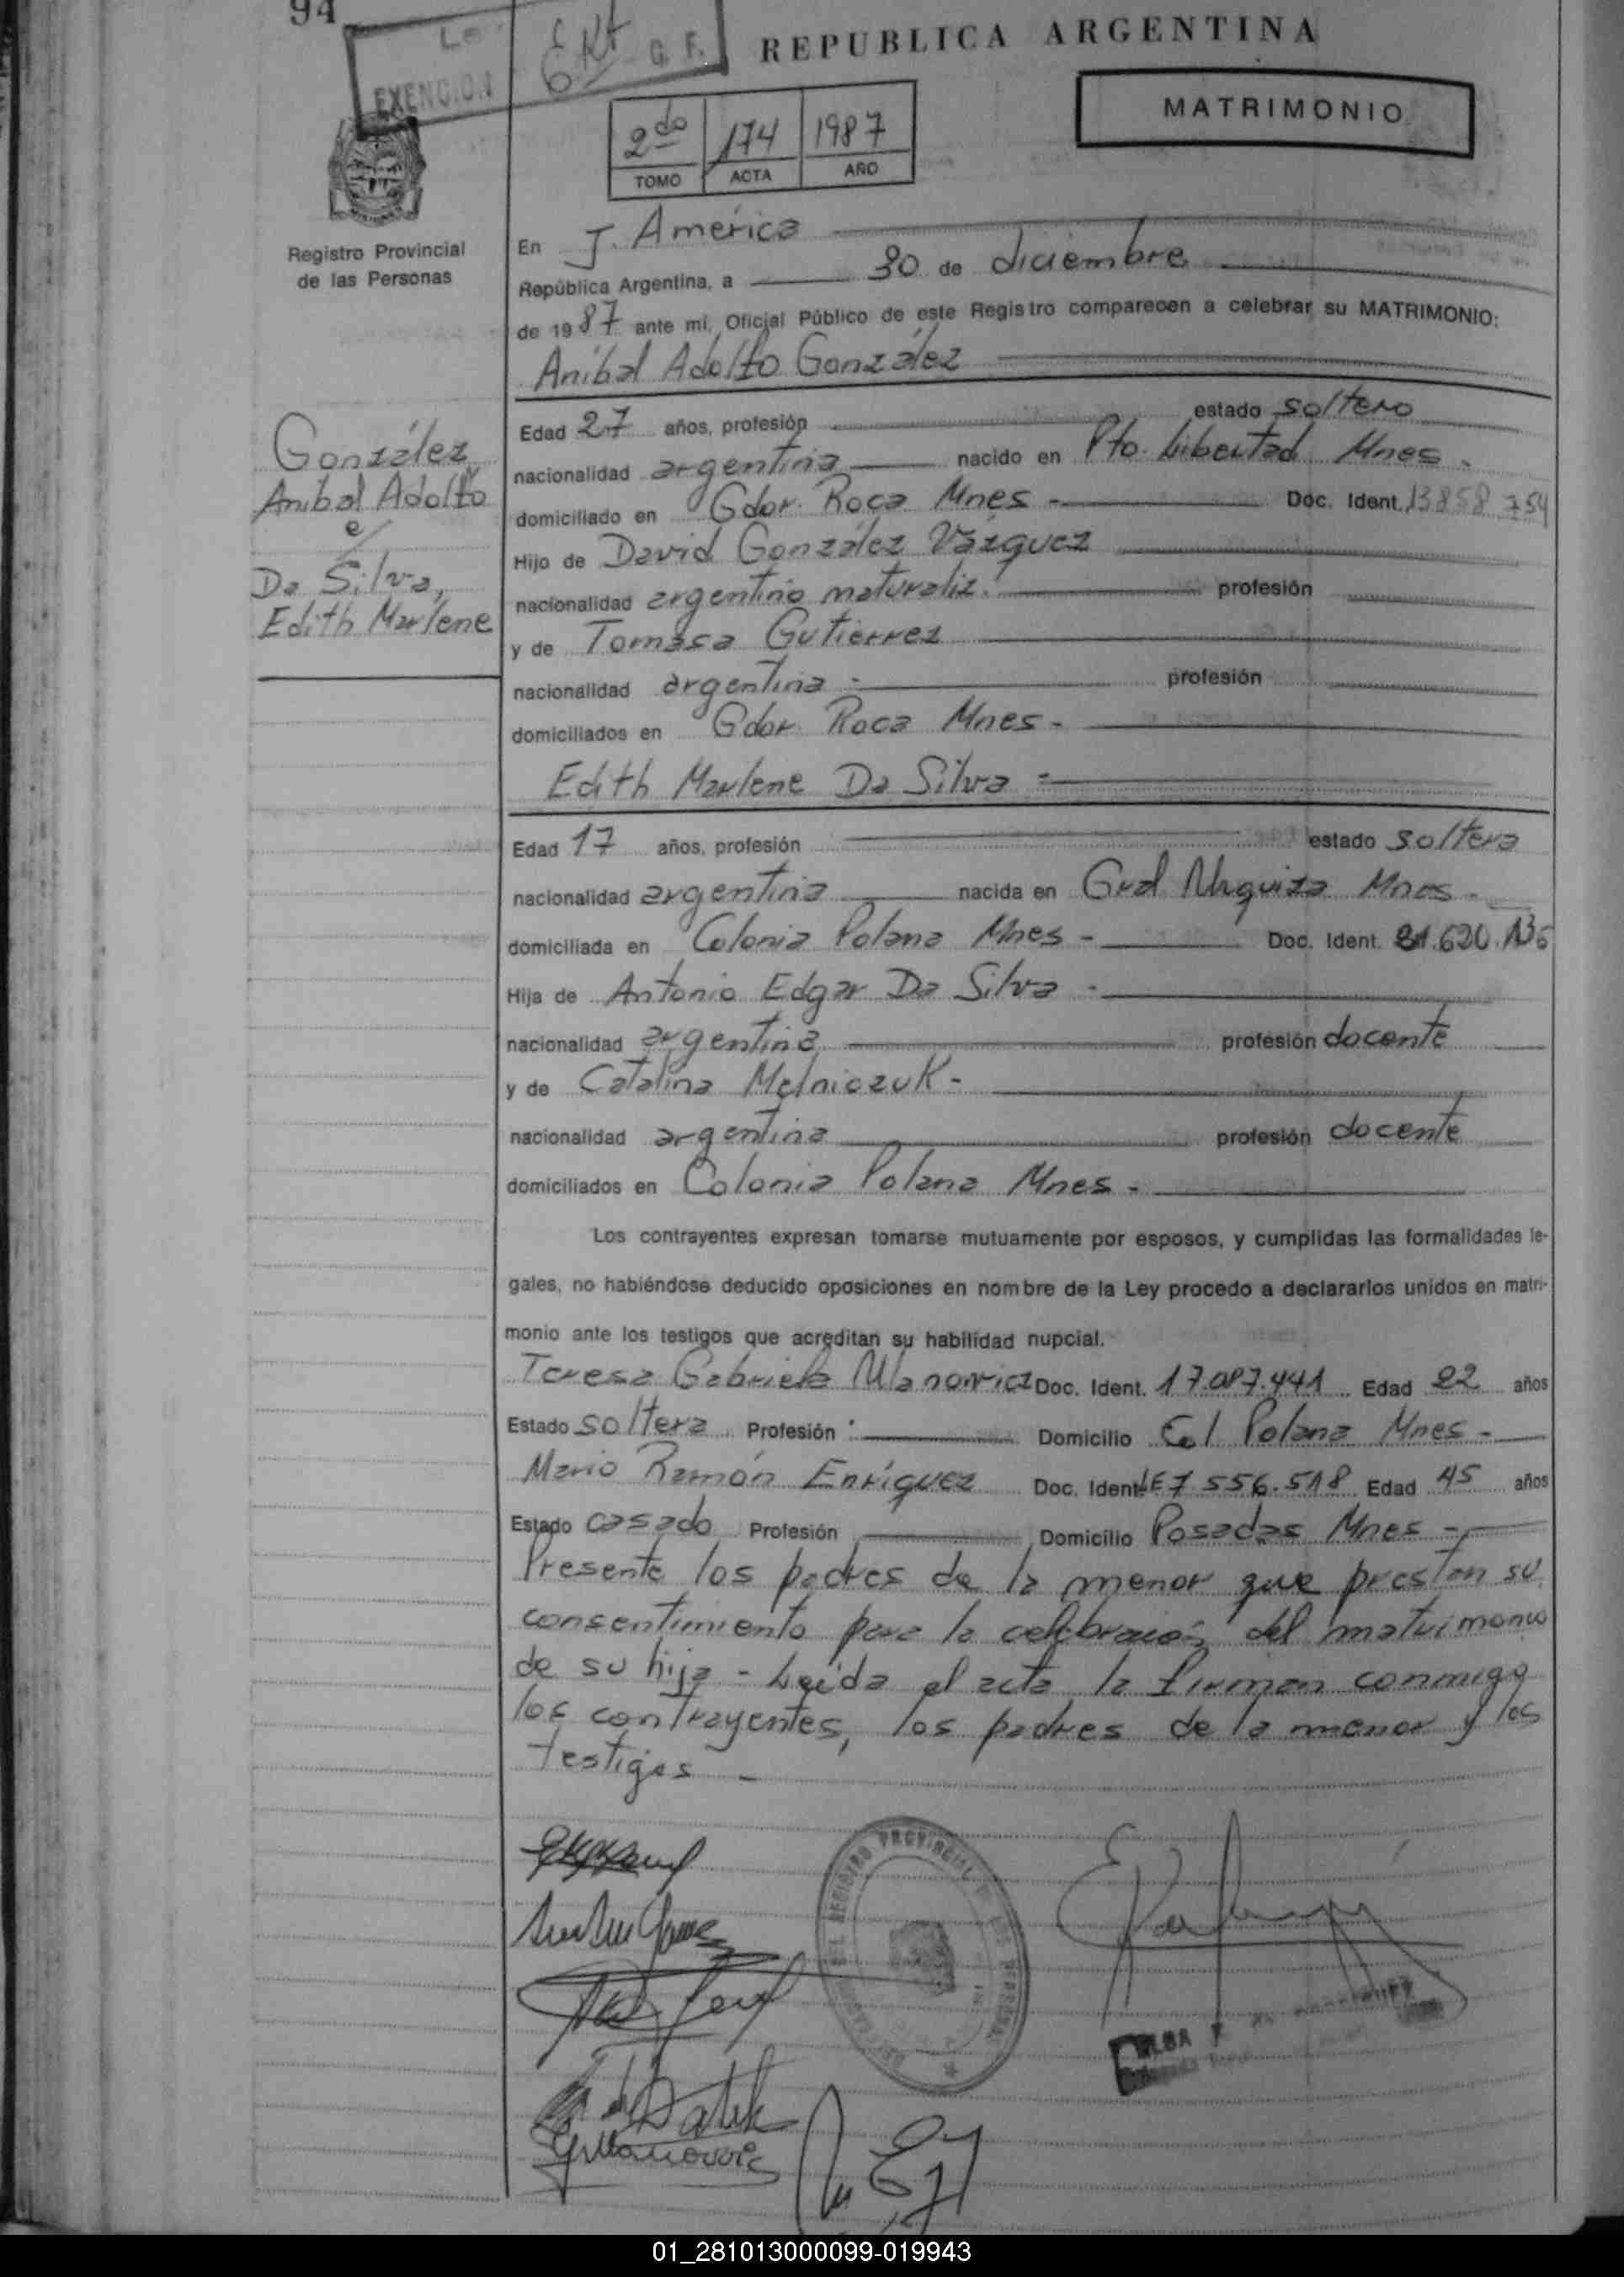 94
EXENCION
G. F.
REPUBLICA ARGENTINA
MATRIMONIO
2do 174 1987
TOMO ACTA AÑO
Registro Provincial
de las Personas
En J. América
República Argentina, a 30 de diciembre
de 1987 ante mí, Oficial Público de este Registro comparecen a celebrar su MATRIMONIO:
Aníbal Adolfo González
González
Aníbal Adolfo
c/
Da Silva,
Edith Marlene
Edad 27 años, profesión estado soltero
nacionalidad argentina nacido en Pto. Libertad Mnes -
domiciliado en Gdor. Roca Mnes - Doc. Ident. 13858 754
Hijo de David González Vázquez
nacionalidad argentino naturaliz. profesión
y de Tomasa Gutierrez
nacionalidad argentina - profesión
domiciliados en Gdor. Roca Mnes -
Edith Marlene Da Silva =
Edad 17 años, profesión estado soltera
nacionalidad argentina nacida en Gral Urquiza Mnes -
domiciliada en Colonia Polana Mnes - Doc. Ident. 21.620.136
Hija de Antonio Edgar Da Silva -
nacionalidad argentina profesión docente
y de Catalina Melniczuk -
nacionalidad argentina profesión docente
domiciliados en Colonia Polana Mnes -
Los contrayentes expresan tomarse mutuamente por esposos, y cumplidas las formalidades le-
gales, no habiéndose deducido oposiciones en nombre de la Ley procedo a declararlos unidos en matri-
monio ante los testigos que acreditan su habilidad nupcial.
Teresa Gabriela Ulanovicz Doc. Ident. 17.087.441 Edad 22 años
Estado soltera Profesión Domicilio Col Polana Mnes -
Mario Ramón Enríquez Doc. Ident. LE 7.556.518 Edad 45 años
Estado casado Profesión Domicilio Posadas Mnes -
Presente los padres de la menor que prestan su
consentimiento para la celebración del matrimonio
de su hija - Leída el acta la firman conmigo
los contrayentes, los padres de la menor y los
testigos -
01_281013000099-019943